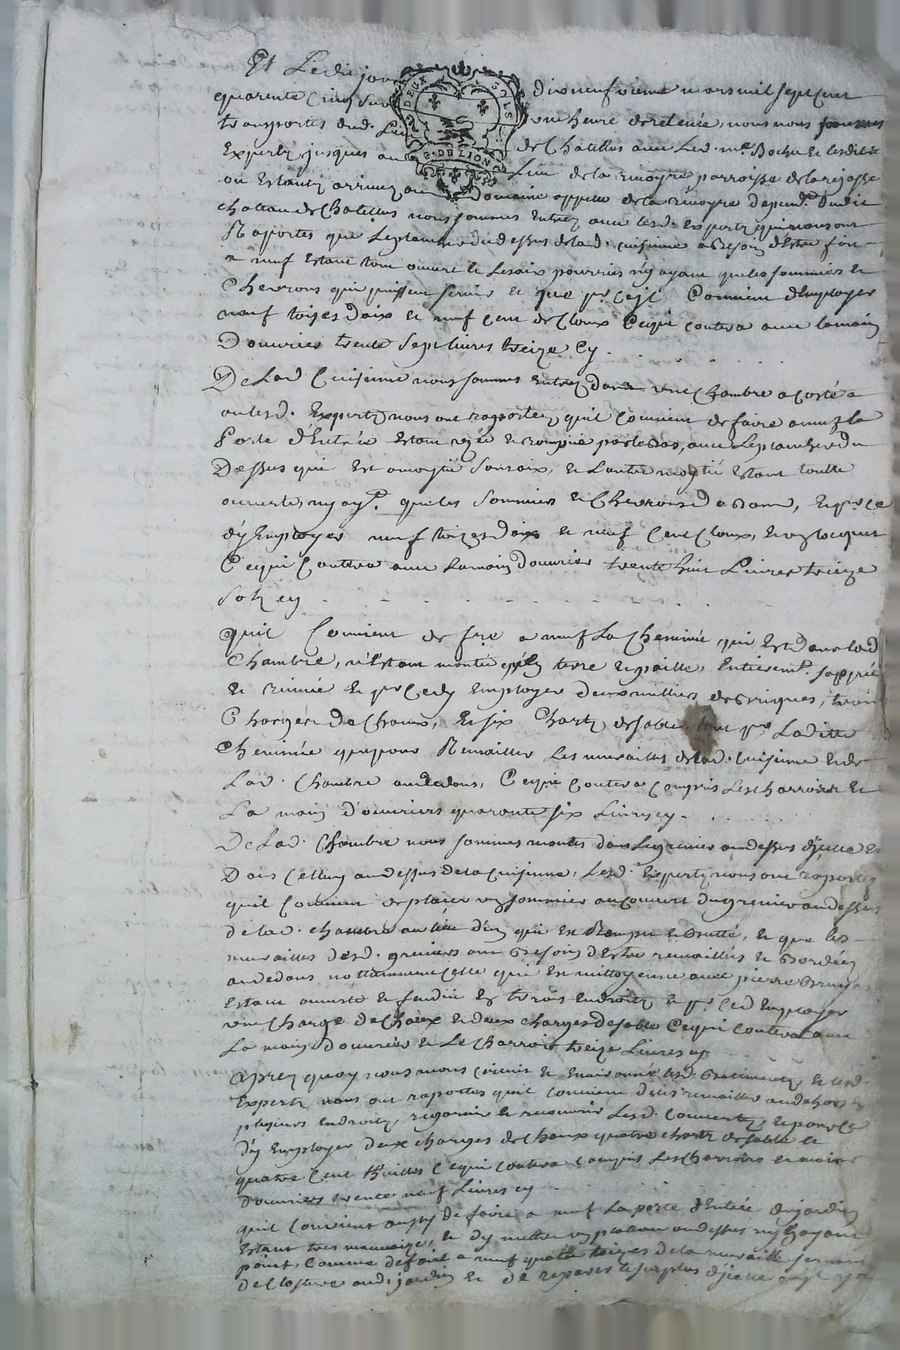 Et Ledit jour dixneufvieme mars mil sept cent
quarente Cinq sur une heure de relevée, nous nous sommes
transportes dud. Lieu de Chatillus avec Led. me. Bocha et lesdits
Experts, jusques au Lieu de la rimoyre parroisse de la
ou Estants arrivez au Domaine appellé de la rimoyre depend. dudit
chateau de Chatillus nous sommes Entrez avec lesd. Experts qui nous ont
Raportes que Leplancher du dessus de lad. cuisinne a Besoin d'Estre fait
a neuf Estant tout ouvert et Lesaix pourries ny ayant que les sommiers et
Cheverons qui puissent servir et que pr. ce il Convient d'Employer
neuf toizes daix et neuf Cent de Cloux Ce qui coutera avec la main
Douvrier trente sept livres treize Cy
De Lad. Cuisinne nous sommes entrez dans une Chambre a costé
ou lesd. Experts nous ont raportez quil Convient de faire a neuf la
Porte d'Entrée Estant uzée et rompüe par le bas, avec Le plancher du
Dessus qui Est a moytié sans aix, et Lautre moytié Estant toutte
ouverte, ny ay. que les Sommiers et Cheverons de bons, et pr. ce
d'y Employer neuf toizes d'aix et neuf Cent Cloux, et un loquet
Ce qui Coutera avec Lamain d'ouvrier trente huit Livres treize
Sols cy
Quil Convient de fre a neuf La Cheminée qui Est dans lad.
Chambre, n'Estant montée qu'En terre et paille, Entierem.
et ruinée et pr. Ce d'y Employer deux milliers de briques, trois
Charges de Chaux, et six Chartz de sable, tant pr. Laditte
Cheminée que pour Remailler Les murailles de lad. cuisinne et de
Lad. Chambre au dedans, Ce qui Coutera Compris Les Charrois et
La main d'ouvriers quarente six Livres cy
De Lad. Chambre nous sommes montés dans Le grenier au dessus d'jcelle Et
Dans Celluy au dessus de la Cuisinne, Lesd. Experts nous ont raportés
quil Convient de placer un sommier au Couvert du grenier au dessus
de lad. chambre au lieu d'un qui Est Rompu et que les
murailles desd. greniers ont Besoin d'Estre remaillées et Bordées
au dedans nottamment Celle qui Est mittoyenne avec pierre
Estant ouverte et fendüe En trois Endroits et pr. Ce d'y Employer
une Charge de Chaux et deux charges de sable Ce qui Coutera avec
La main Douvrier et Le Charroir treize Livres cy
Aprez quoy nous avons lesd. Batiments, et Lesd.
Experts nous ont raportés quil Convient de les remailler au dehors en
plusieurs Endroits, et recouvrir Lesd. Couverts, et pour Ce
d'y Employer deux charges de Chaux quatre chartz de sable et
quatre Cent thuilles Ce qui Coutera Compris Les Charrois et main
Douvriers trente neuf Livres cy
quil Convient aussy de faire a neuf La porte d'Entrée du jardin
Estant tres mauvaize, et d'y mettre un plateau au dessus ny En ayant
point, Comme de faire a neuf quatre toizes de la muraille servant
de Closture aud. jardin et de reparer le surplus d'jcelle